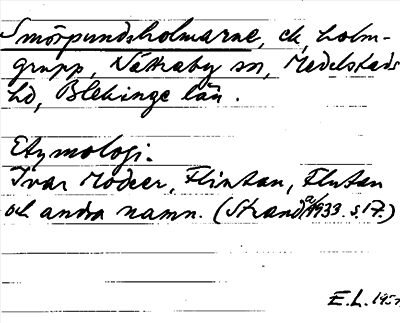 Smörpundsholmarne, ck, holm-
grupp, Nättraby sn, Medelstads
hd, Blekinge län.
Etymologi.
Ivar Modéer, Flintan, Flutan
och andra namn. (Strand 1933. s. 17.)
E.L. 195